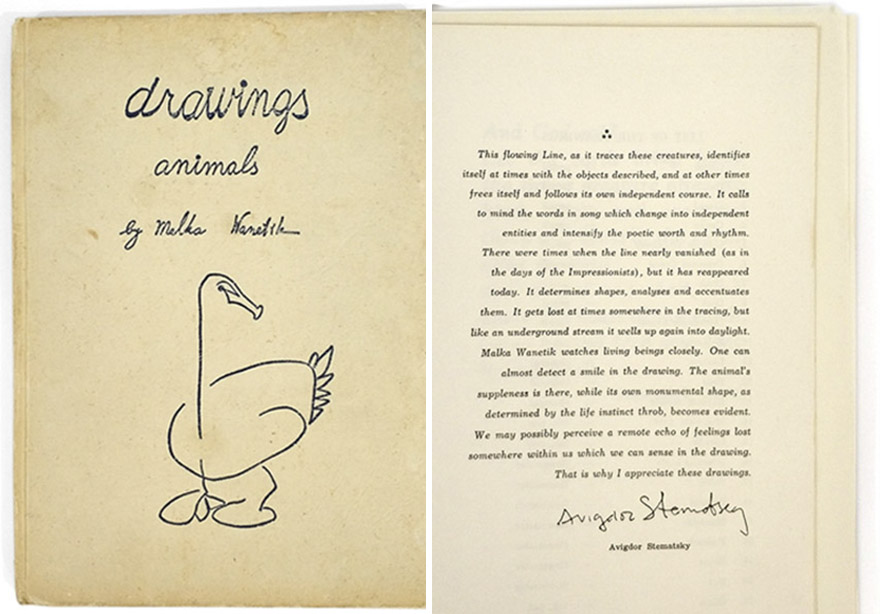 drawings
animals
by Malka Wanetik
This flowing Line, as it traces these creatures, identifies
itself at times with the objects described, and at other times
frees itself and follows its own independent course. It calls
to mind the words in song which change into independent
entities and intensify the poetic worth and rhythm.
There were times when the line nearly vanished (as in
the days of the Impressionists), but it has reappeared
today. It determines shapes, analyses and accentuates
them. It gets lost at times somewhere in the tracing, but
like an underground stream it wells up again into daylight.
Malka Wanetik watches living beings closely. One can
almost detect a smile in the drawing. The animal's
suppleness is there, while its own monumental shape, as
determined by the life instinct throb, becomes evident.
We may possibly perceive a remote echo of feelings lost
somewhere within us which we can sense in the drawing.
That is why I appreciate these drawings.
Avigdor Stematsky
Avigdor Stematsky